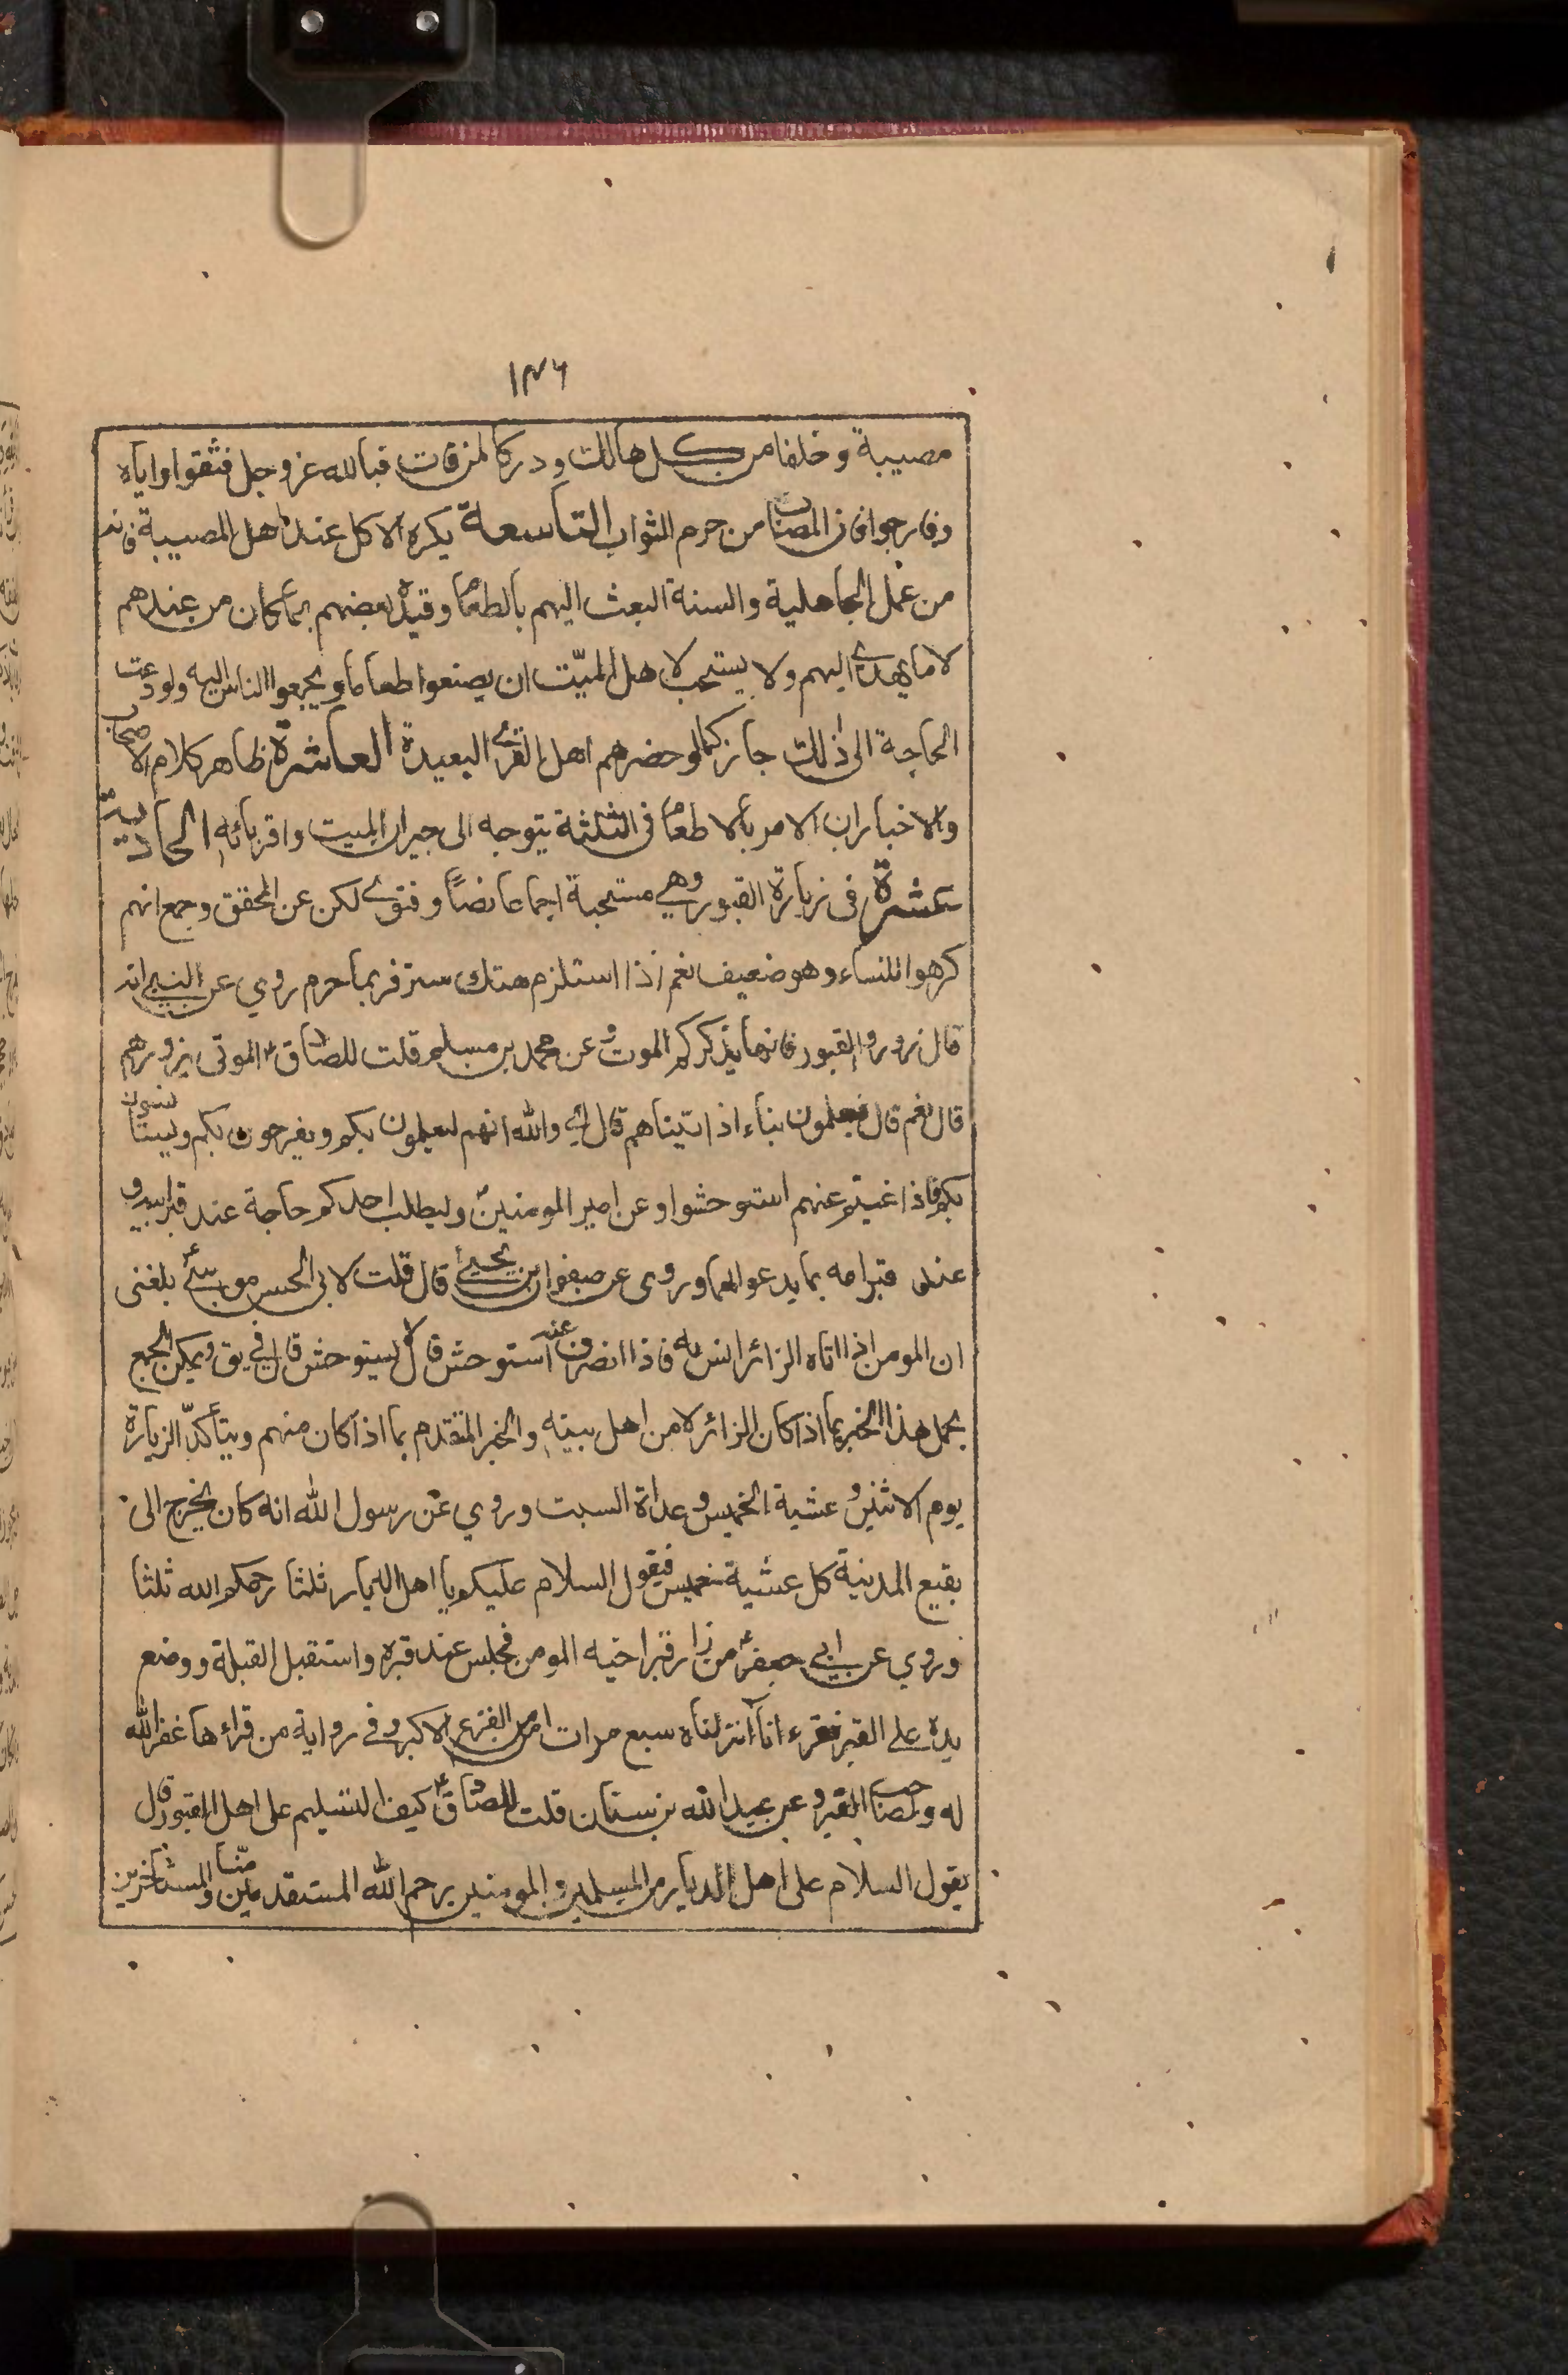 ١٣٦
مصيبة وخلفا من كل هالك ودركا لمن فات فبالله عز وجل فثقوا واياه
وفارجوا فان المصاب من حرم الثواب التاسعة يكره الاكل عند اهل المصيبة فانه
من عمل الجاهلية والسنة البعث اليهم بالطعام وقيده بعضهم بما كان من عندهم
لا ما يهدى اليهم ولا يستحب لاهل الميّت ان يصنعوا طعاما ويجمعوا الناس اليه ولو دعت
الحاجة الى ذلك جاز كما لو حضرهم اهل القرى البعيدة العاشرة ظاهر كلام الاصحاب
والاخبار ان الامر بالاطعام فى الثلثة يتوجه الى جيران الميت واقربائه الحادية
عشرة فى زيارة القبور وهى مستحبة اجماعا نصاً وفتوى لكن عن المحقق وجمع انهم
كرهوا للنساء وهو ضعيف نعم اذا استلزم هتك ستر فربما حرم روي عن النبي انه
قال زوروا القبور فانها يذكركم الموت وعن محمد بن مسلم قلت للصادق ع الموتى يزورهم
قال نعم قال فيعلمون بناء اذا تيناهم قال اي والله انهم ليعلمون بكم ويفرحون بكم ويستانسون
بكم فاذا غبتم عنهم استوحشوا وعن امير المومنين ع وليطلب احدكم حاجة عند قبر ابيه و
عند قبر امه بما يدعو لهما وروى عن صفوان بن يحيى قال قلت لابى الحسن موسى ع بلغنى
ان المومن اذا اتاه الزائر انس به فاذا انصرف عنه استوحش قال لا يستوحش قال فى يق ويمكن الجمع
بحمل هذا الخبر بما اذا كان الزائر لا من اهل بيته والخبر المتقدم بما اذا كان منهم ويتأكدّ الزيارة
يوم الاثنين وعشية الخميس وغداة السبت وروي عن رسول الله انه كان يخرج الى
بقيع المدينة كل عشية خميس فيقول السلام عليكم يا اهل الديار ثلثا رحمكم الله ثلثا
وروي عن ابي جعفر ع من زار قبر اخيه المومن فجلس عند قبره واستقبل القبلة ووضع
يده على القبر فقرء انا انزلناه سبع مرات امن من الفزع الاكبر وفى رواية من قراءها غفر الله
له ولصاحب القبر وعن عبد الله بن سنان قلت للصادق ع كيف التسليم على اهل القبور قال
يقول السلام على اهل الديار من المسلمين والمومنين رحم الله المستقدمين منّا والمستاخرين